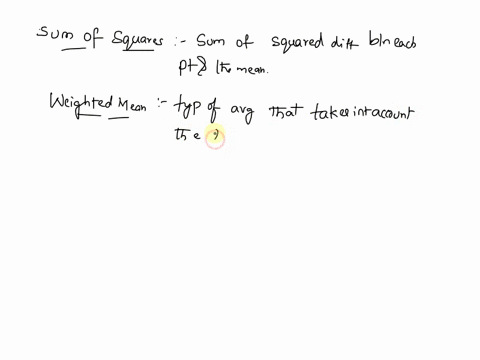 Sum of Squares :- Sum of squared diff b/n each
pt & the mean.
Weighted Mean :- typ of avg that takes into account
the